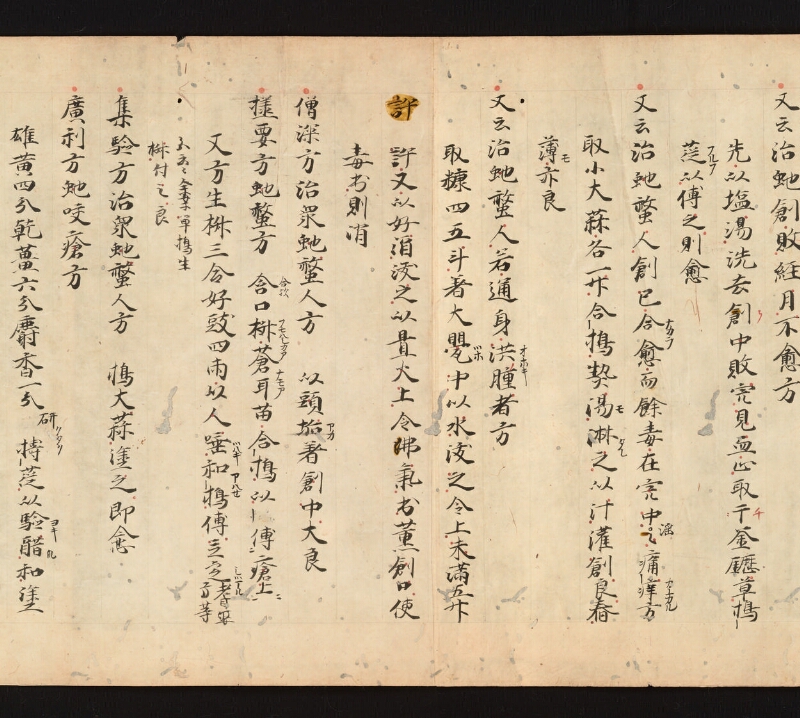 又云治虵創敗経月不愈方
先以塩湯洗去創中敗完見血止取千金䥶草搗
篵以傅之則愈
又云治虵螫人創已合愈而餘毒在完中〻痛痒方
取小大蒜各一升合搗熱湯淋之以汁灌創良春
薄亦良
又云治虵螫人若通身洪腫者方
取糠四五斗著大甖中以水淩之令上未満五升
許又以好酒淩之以置火上令沸氣出薫創口使
毒出則消
僧深方治衆虵螫人方 以頭垢著創中大良
極要方虵螫方 含口椒蒼耳苗合搗以傅瘡上
又方生椒三合好豉四両以人唾和搗傅之定
椒付之良
集驗方治衆虵螫人方 搗大蒜塗之即愈
廣利方虵咬瘡方
雄黄四分乾薑六分麝香一分研 擣篵以醶醋和塗